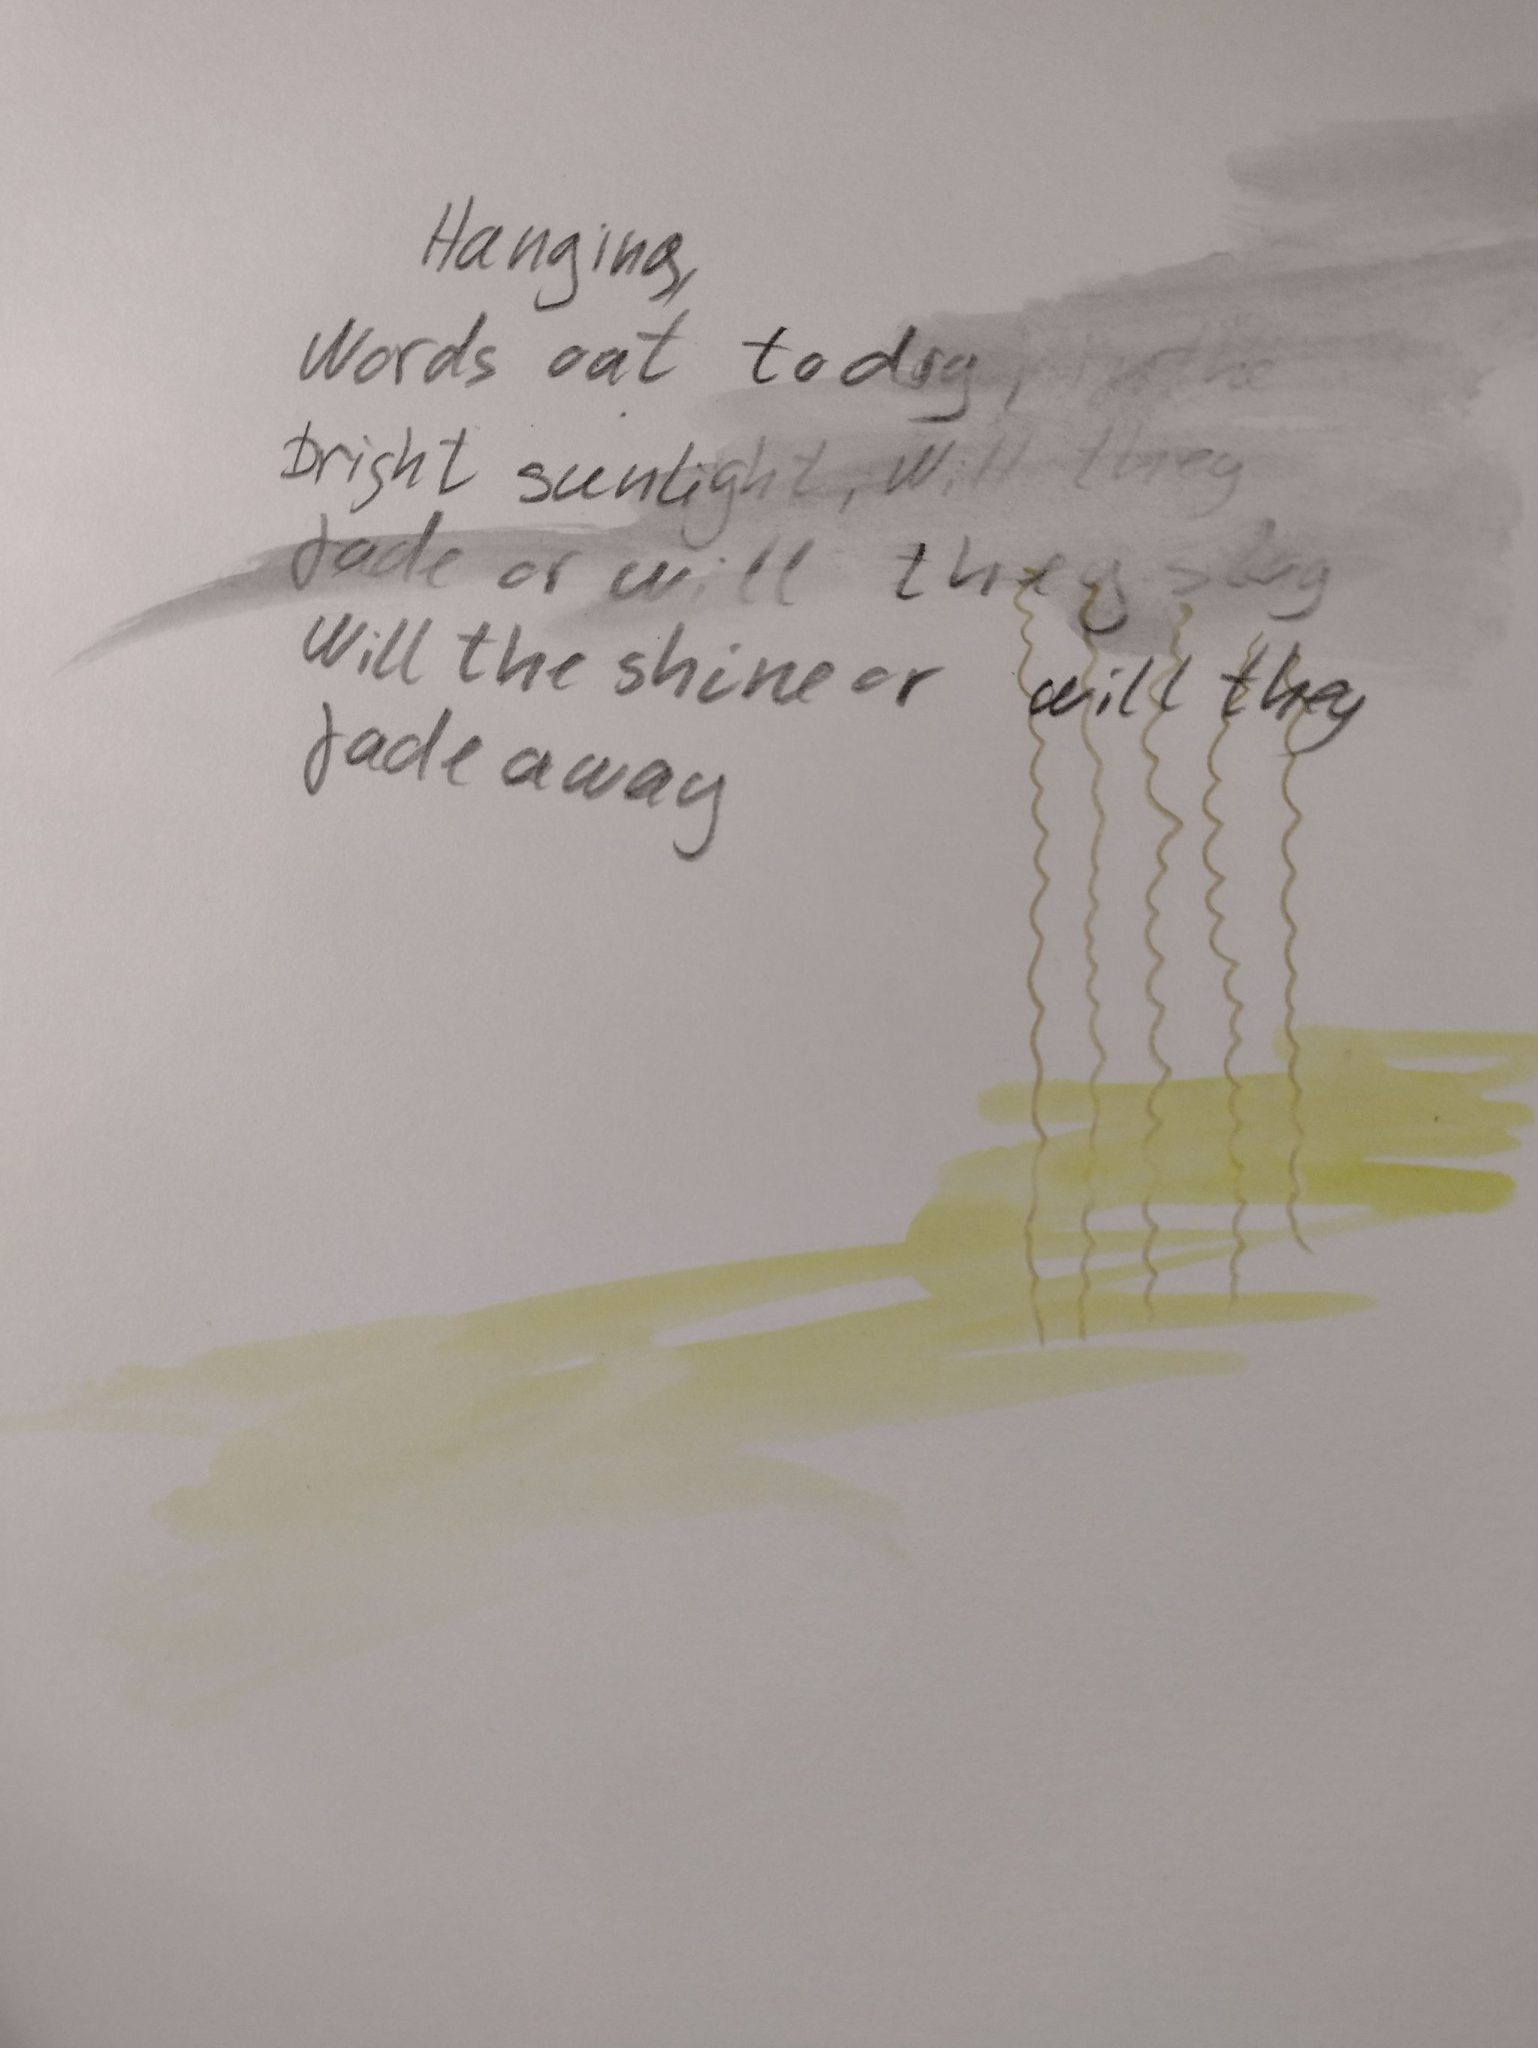 Hanging,
Words out to dry, in the
Bright sunlight, Will they
fade or will they stay
Will the shine or will they
fade away